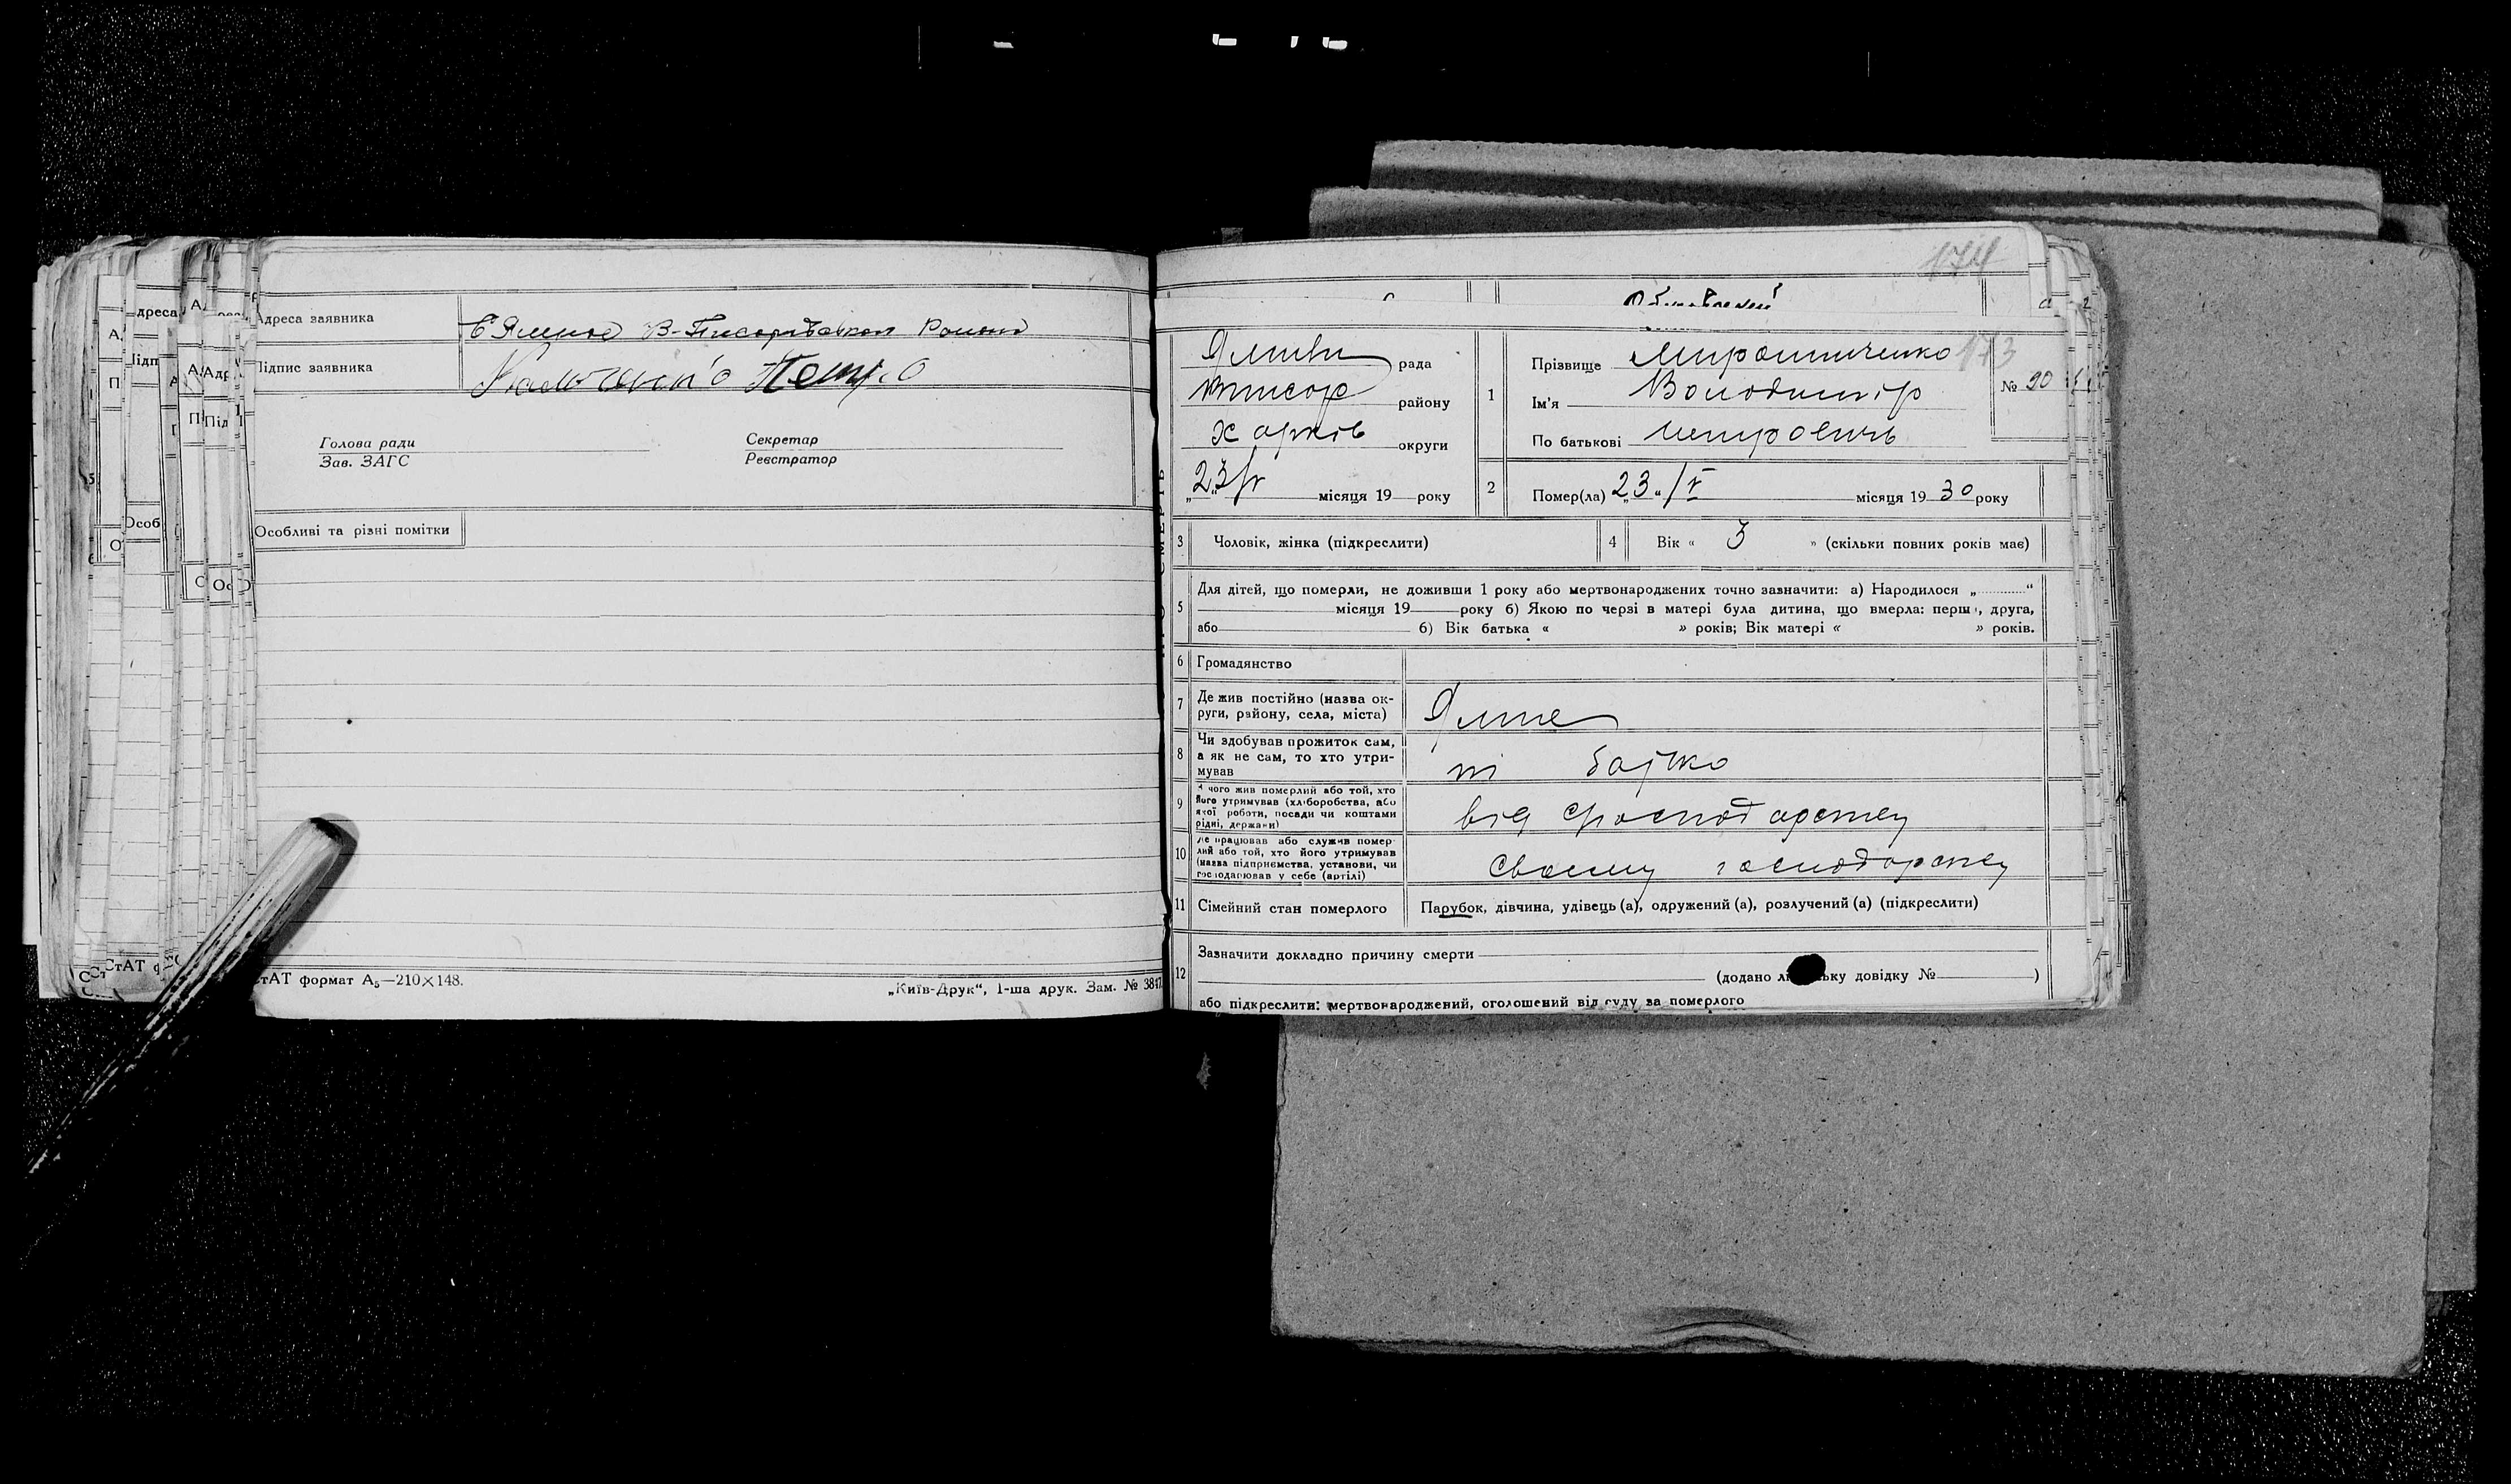 Адреса заявника
С Ямное В-Писарівского Району
Підпис заявника
Петро
Голова ради
Зав. ЗАГС
Секретар
Реєстратор
Особливі та різні помітки
СтАТ формат А₅—210×148.
„Київ-Друк“, 1-ша друк. Зам. № 3847
174
рада
Писар району
Харків округи
„23/V місяця 19 року
1
Прізвище Мирошниченко 173
Ім'я Володимір
По батькові Петровичь
№ 90
2
Помер(ла) „23“/V місяця 1930 року
3 Чоловік, жінка (підкреслити)
4 Вік « 3 » (скільки повних років має)
5 Для дітей, що померли, не доживши 1 року або мертвонароджених точно зазначити: а) Народилося „ “
місяця 19 року б) Якою по черзі в матері була дитина, що вмерла: перша, друга,
або б) Вік батька « » років; Вік матері « » років.
6 Громадянство
7 Де жив постійно (назва ок-
руги, району, села, міста)
Ямне
8 Чи здобував прожиток сам,
а як не сам, то хто утри-
мував
ні батько
9 З чого жив померлий або той, хто
його утримував (хліборобства, або
якої роботи, посади чи коштами
рідні, держави)
від господарству
10 Де працював або служив помер-
лий або той, хто його утримував
(назва підприємства, установи, чи
господарював у себе (артілі)
своєму господарству
11 Сімейний стан померлого
Парубок, дівчина, удівець (а), одружений (а), розлучений (а) (підкреслити)
12 Зазначити докладно причину смерти
(додано лікарську довідку № )
або підкреслити: мертвонароджений, оголошений від суду за померлого